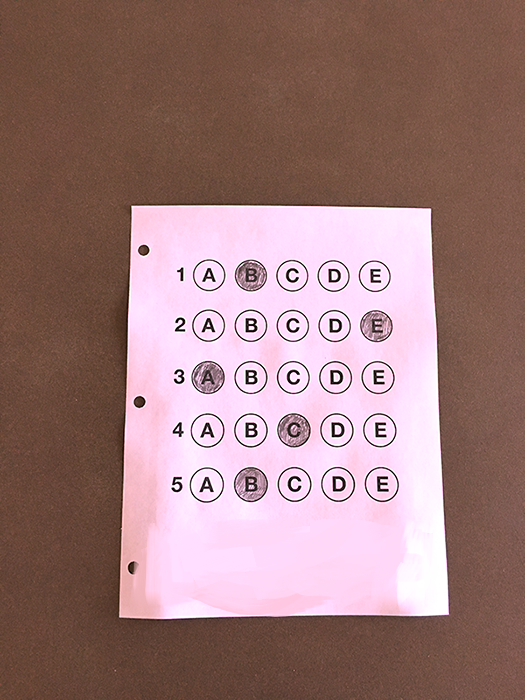 1 A B C D E
2 A B C D E
3 A B C D E
4 A B C D E
5 A B C D E